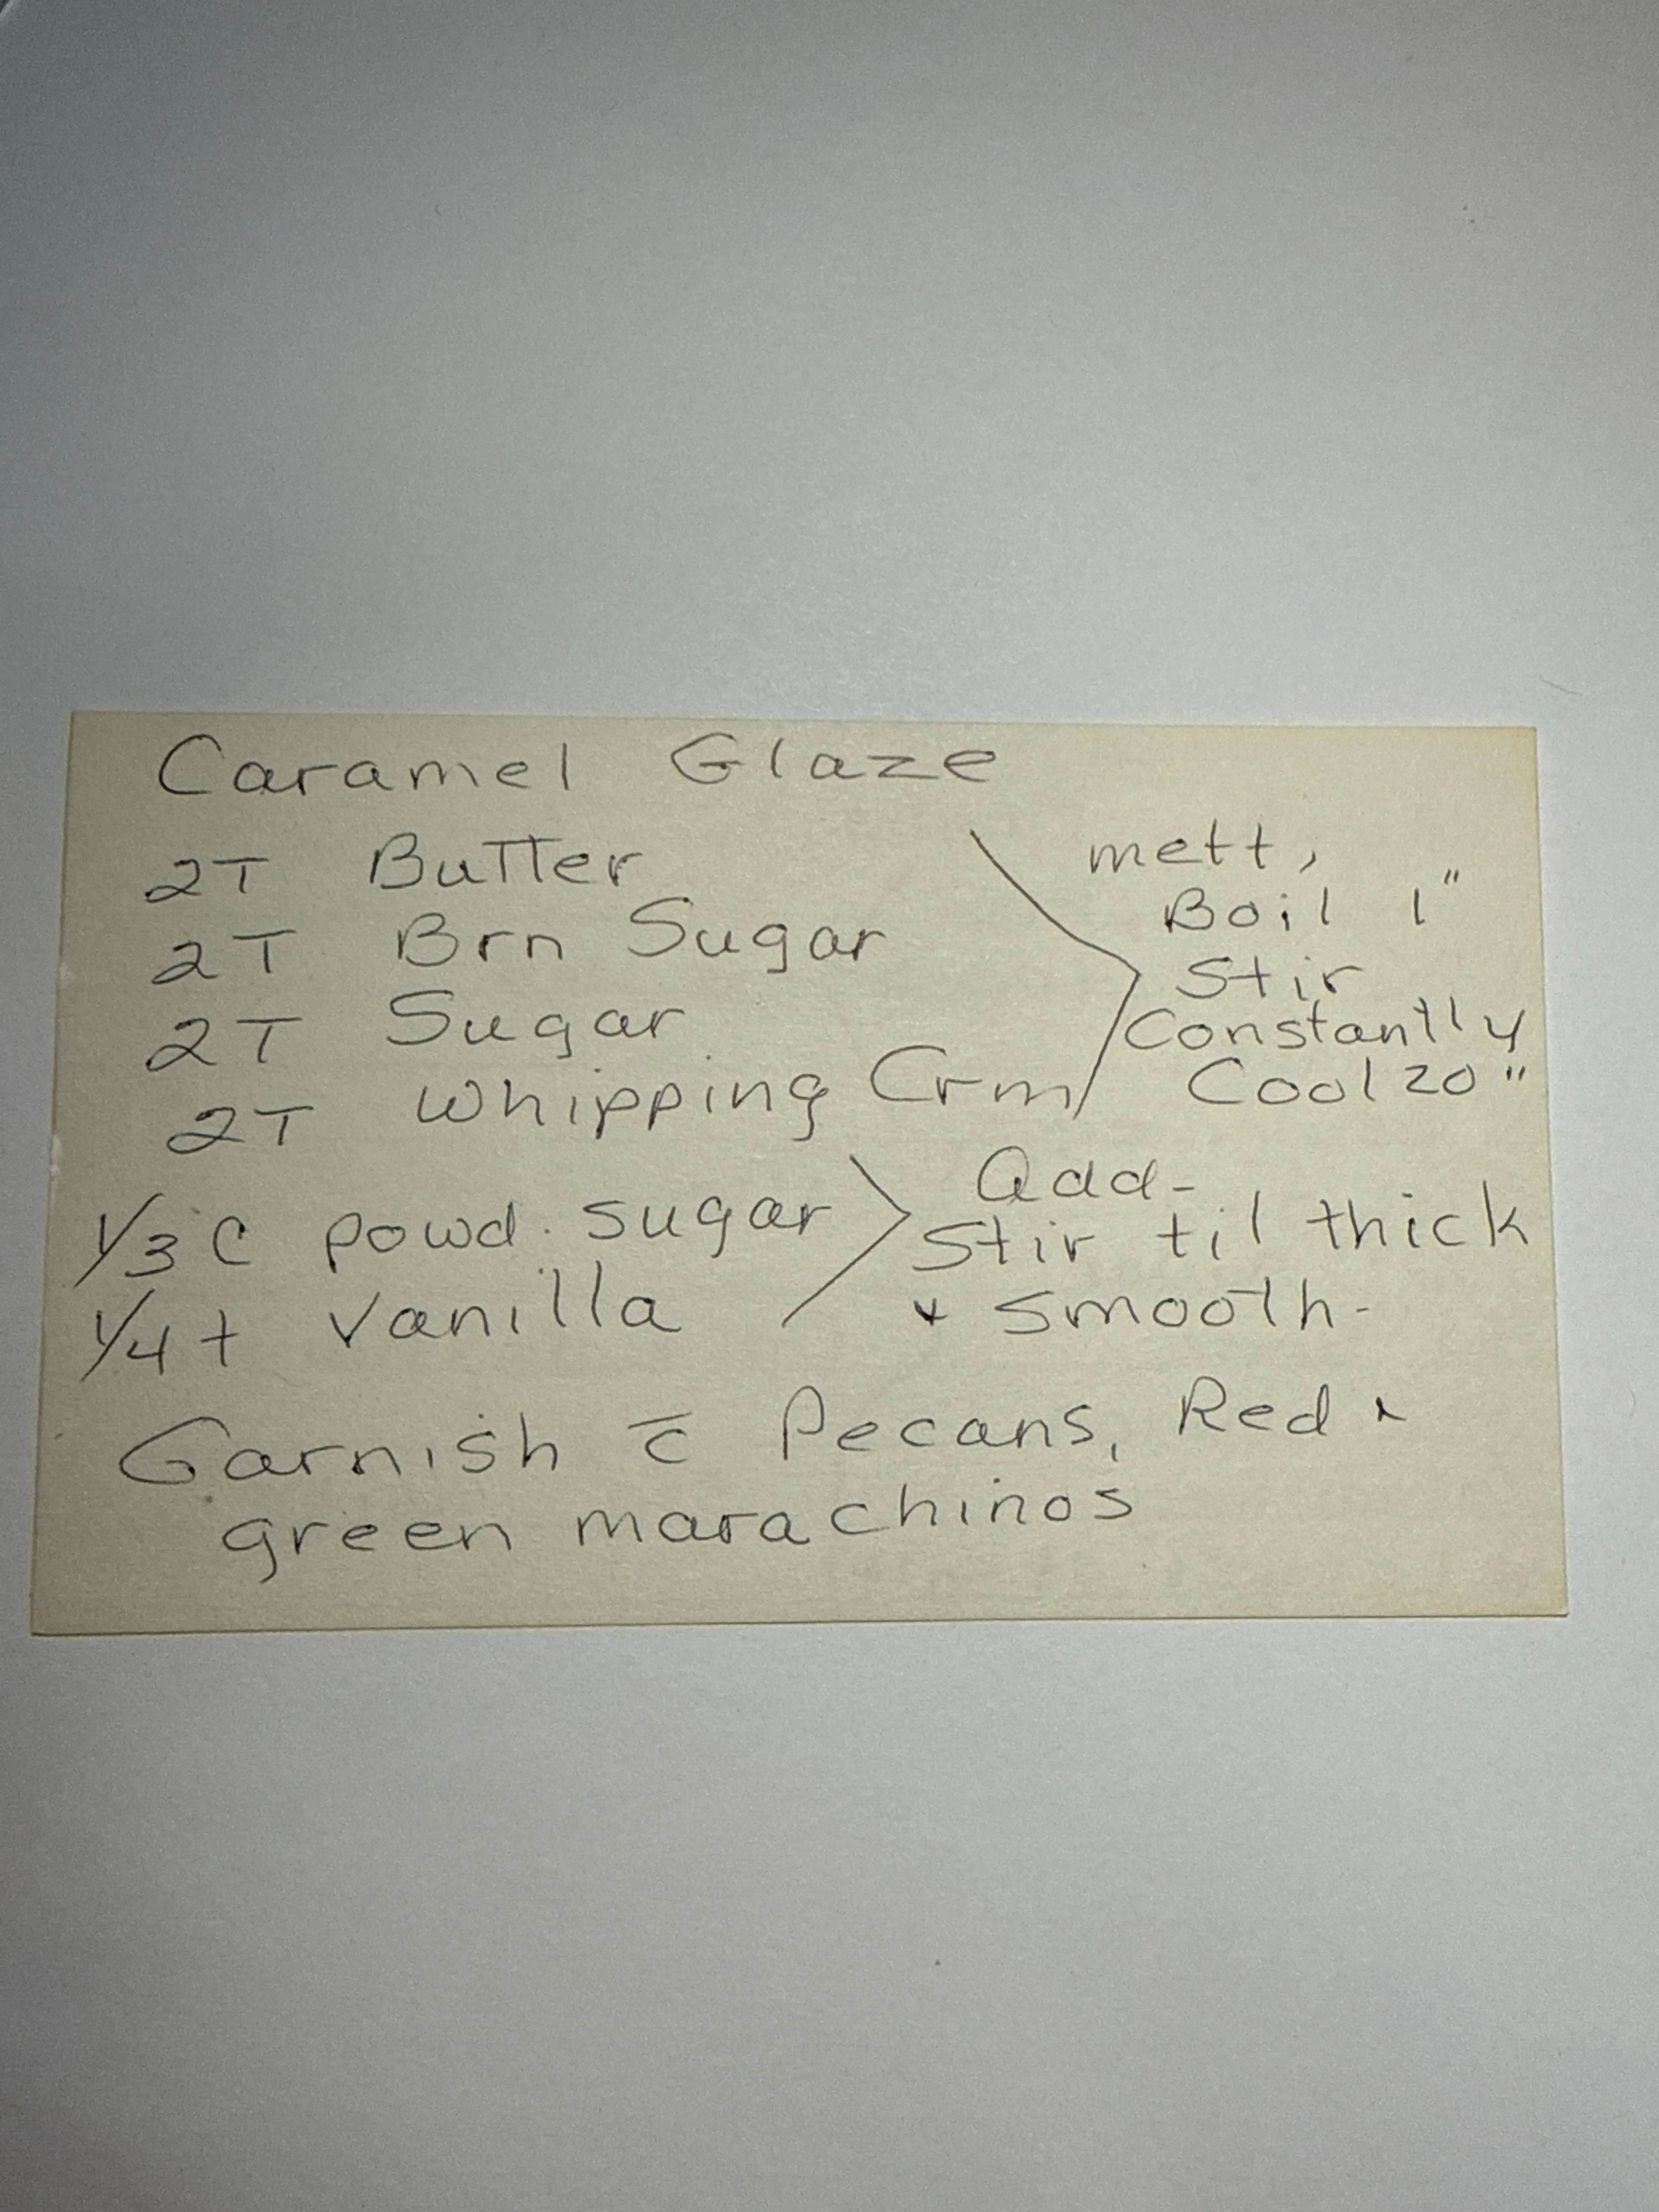 Caramel Glaze
2T Butter
2T Brn Sugar
2T Sugar
2T Whipping Crm
melt,
Boil 1"
Stir
Constantly
Cool 20"
1/3 C powd. sugar
1/4 t vanilla
Add-
Stir til thick
+ smooth-
Garnish c̄ Pecans, Red +
green marachinos